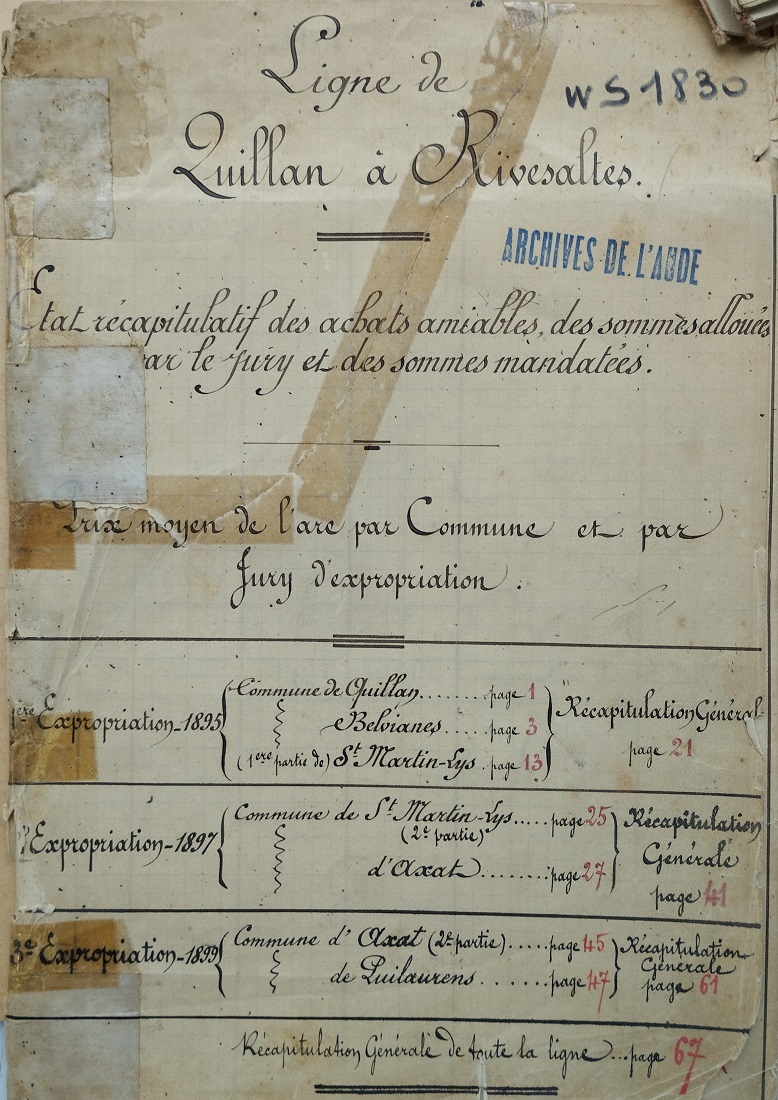 Ligne de
WS 1830
Quillan à Rivesaltes.
ARCHIVES DE L'AUDE
Etat récapitulatif des achats amiables, des sommes allouées
par le Jury et des sommes mandatées.
Prix moyen de l'are par Commune et par
Jury d'expropriation.
1ere Expropriation-1895 Commune de Quillan........page 1
Belvianes.....page 3
(1ere partie de) St Martin-Lys.page 13
Récapitulation Général
page 21
Expropriation-1897 Commune de St Martin-Lys.....page 25
(2e partie)
d'Axat........page 27
Récapitulation
Générale
page 41
3e Expropriation-1899 Commune d'Axat (2e partie).....page 45
de Puilaurens.......page 47
Récapitulation
Générale
page 61
Récapitulation Générale de toute la ligne...page 67